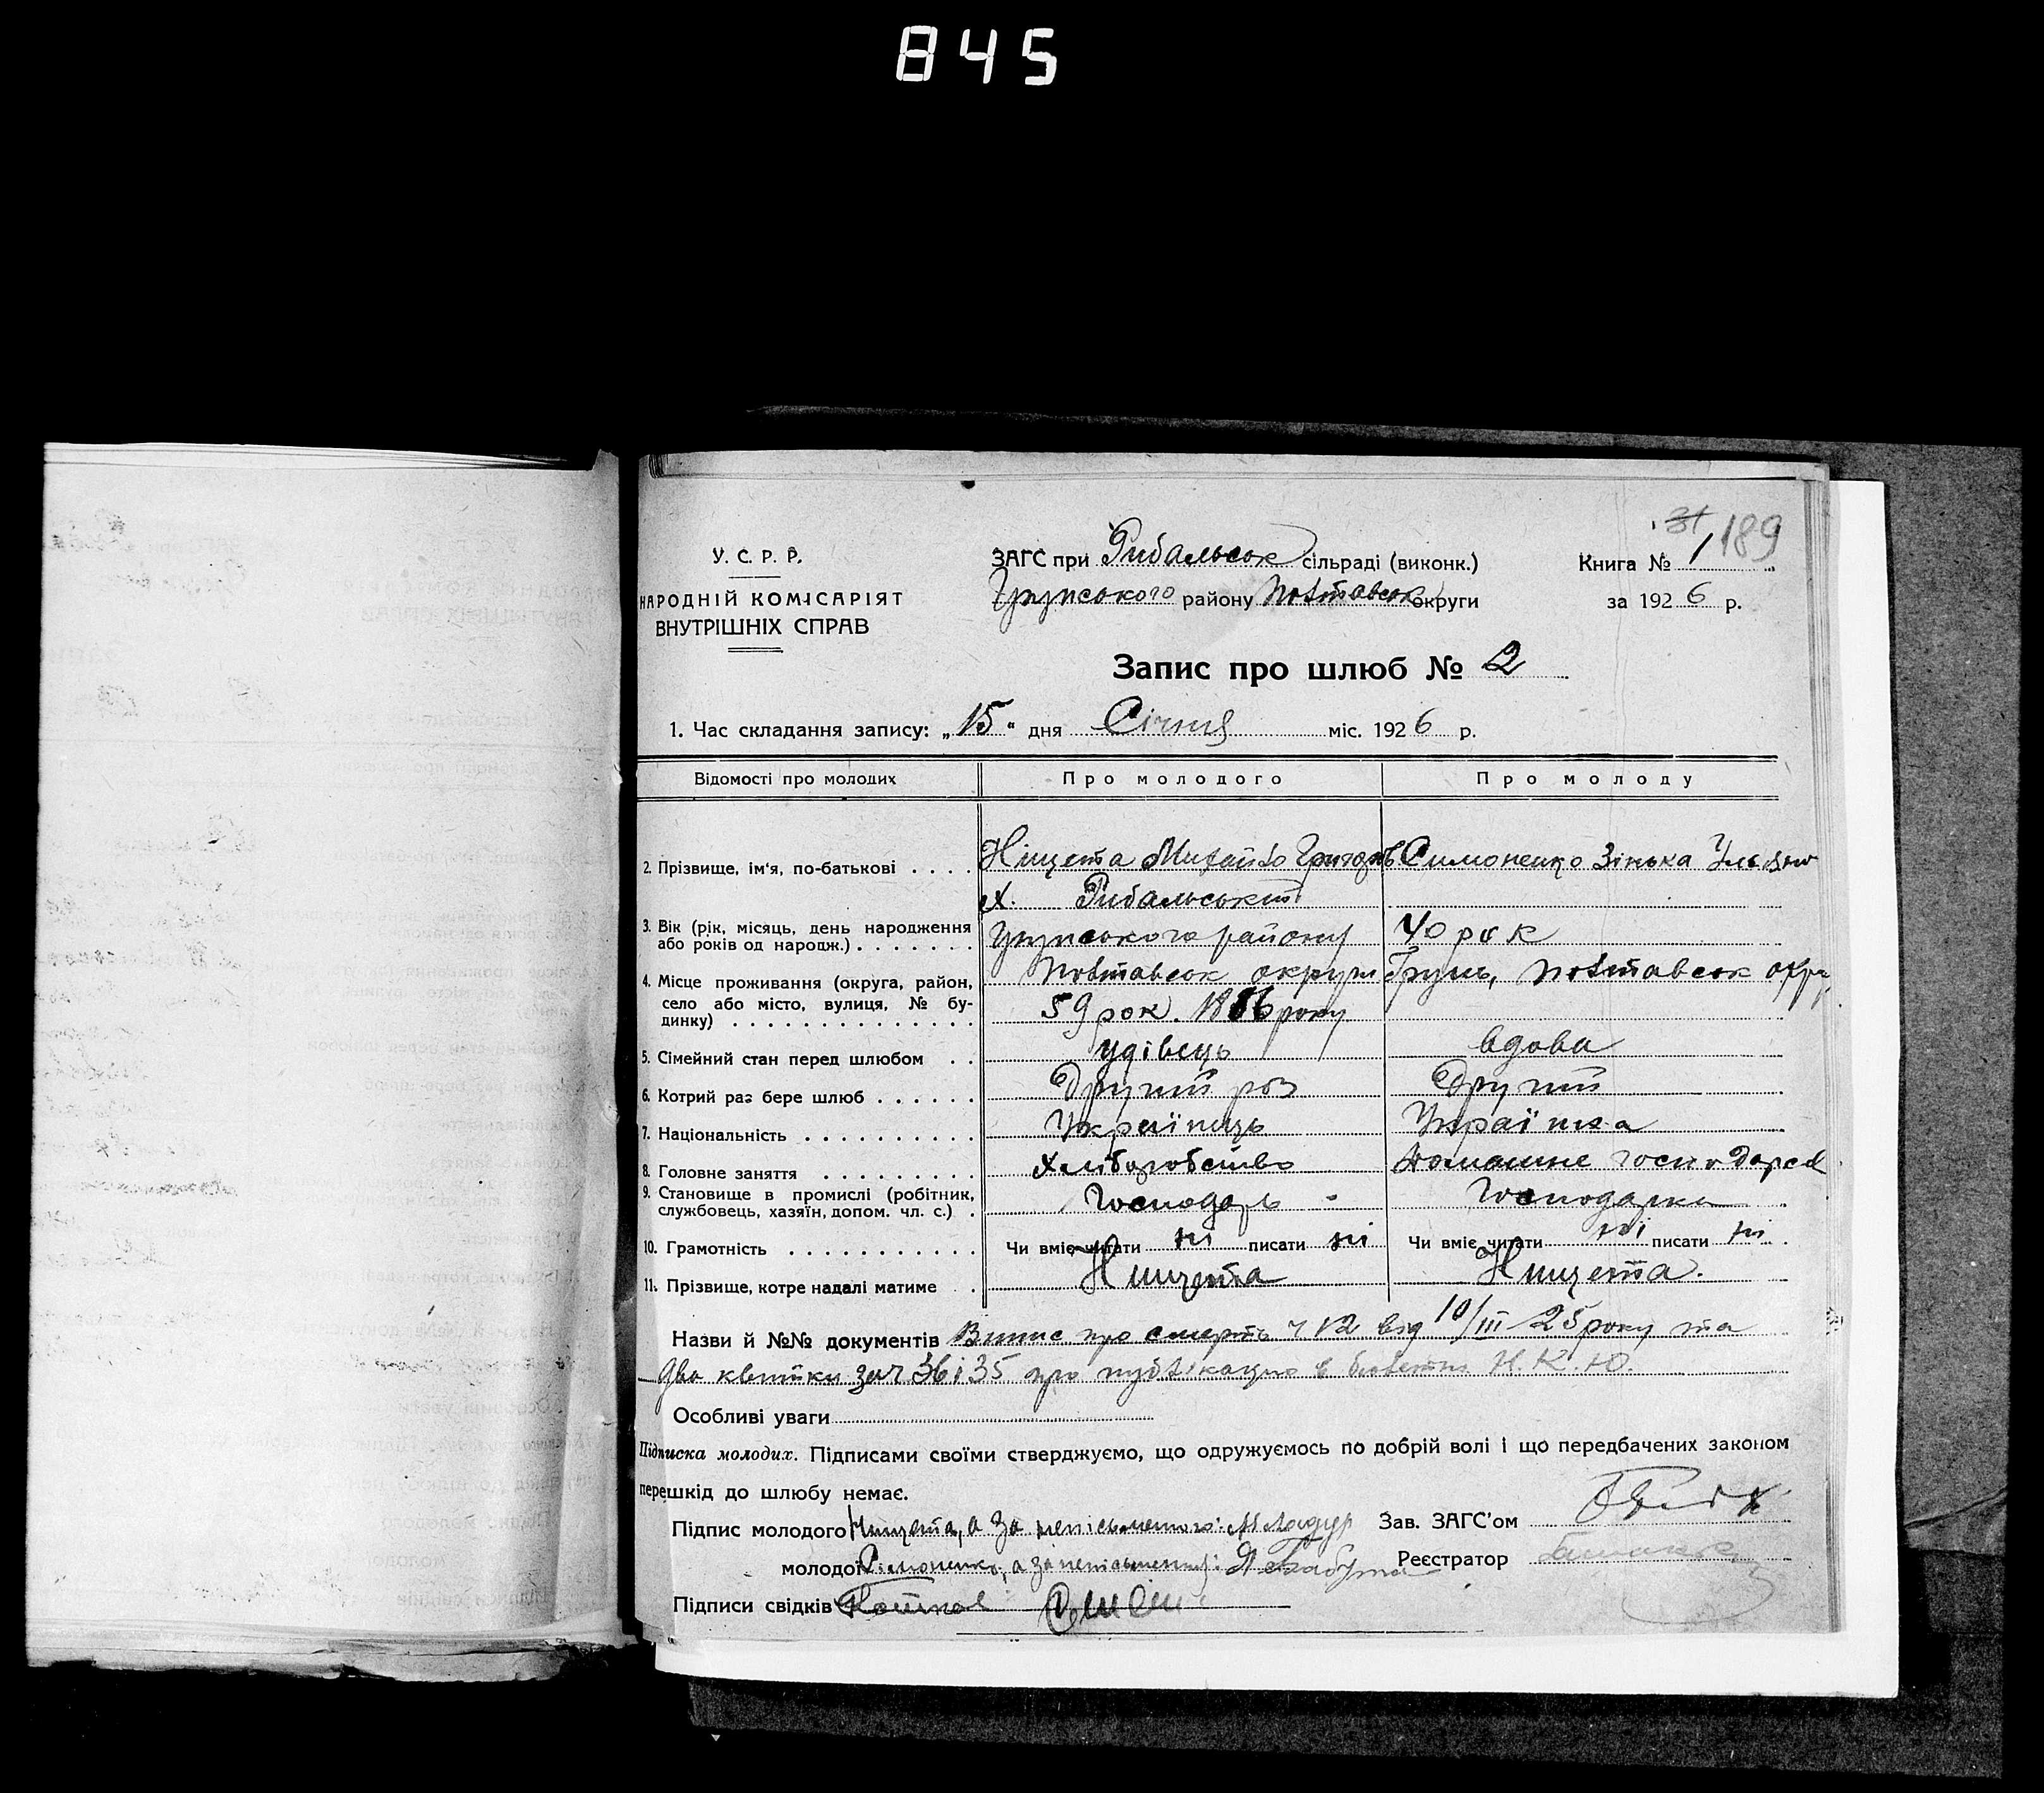 845
31 189
У. С. Р. Р.
НАРОДНІЙ КОМІСАРІЯТ
ВНУТРІШНІХ СПРАВ
ЗАГС при Рибальськ сільраді (виконк.)
Грунського району Полтавськ округи
Книга № 1
за 1926 р.
Запис про шлюб № 2
1. Час складання запису: „15“ дня Січня міс. 1926 р.
Відомості про молодих Про молодого Про молоду
2. Прізвище, ім‘я, по-батькові . . . . Нищета Михайло Григоров. Симоненко Зінька
х. Рибальський
3. Вік (рік, місяць, день народження Грунського району 40 рок
або років од народж.) . . . . . . .
4. Місце проживання (округа, район, Полтавськ округи Грунь, Полтавськ окру
село або місто, вулиця, № бу- 59 рок. 1866 року
динку) . . . . . . . . . . . . . . .
5. Сімейний стан перед шлюбом . . удівець вдова
6. Котрий раз бере шлюб . . . . . . Другий раз Другий
7. Національність . . . . . . . . . . Українець Українка
8. Головне заняття . . . . . . . . . Хліборобство Домашне господарсв
9. Становище в промислі (робітник, Господарь Господарка
службовець, хазяїн, допом. чл. с.) .
10. Грамотність . . . . . . . . . . . Чи вміє читати ні писати ні Чи вміє читати ні писати ні
11. Прізвище, котре надалі матиме . Нищета Нищета.
Назви й №№ документів Випис про смерть ч 12 від 10/III 25 року та
два квитки за ч 36 і 35 про публікацію в бюлетні Н. К. Ю.
Особливі уваги
Підписка молодих. Підписами своїми стверджуємо, що одружуємось по добрій волі і що передбачених законом
перешкід до шлюбу немає.
Підпис молодого Нищета, а за неписьменного: Зав. ЗАГС'ом
молодої Симоненко, а за неписьменну: Реєстратор
Підписи свідків